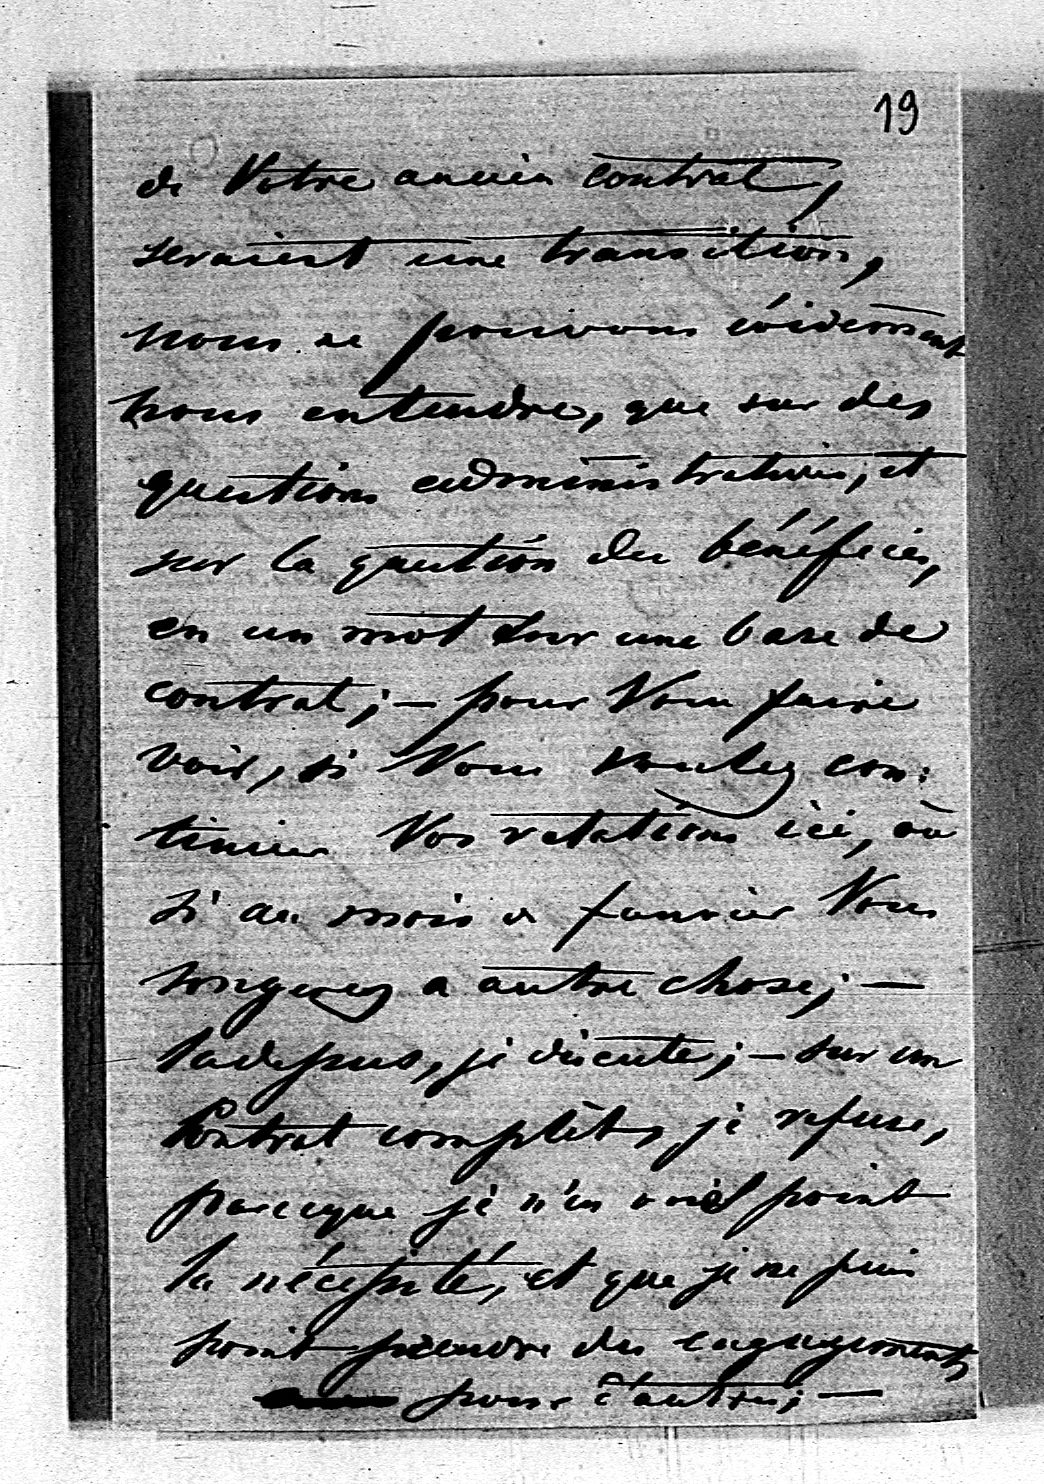 19
de Votre ancien contrat,
seraient une transition,
nous ne pouvons évidemment
nous entendre, que sur des
questions administratives, et
sur la question des bénéfices,
en un mot sur une base de
contrat; — pour Vous faire
voir, si Vous voulez con:
tinuer Vos relations ici, où
si au mois de Janvier Vous
songerez a autre chose; —
ladessus, je discute; — sur un
Contrat complèt, je refuse,
parceque je n'en vois point
la nécessité, et que je ne puis
point prendre des engagements
pour d'autres; —